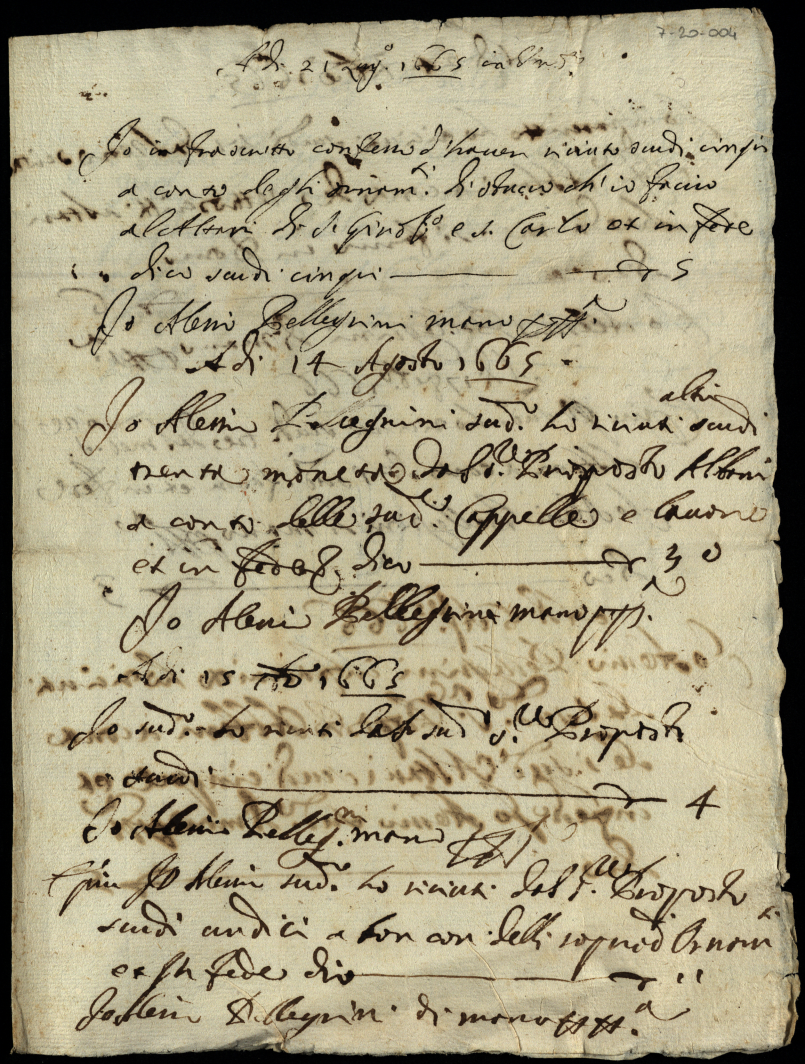 7-20-004
Adi 21 1665 in
Io infrascritto confesso d'haver riciuto scudi cinqu
a conto degli ornam.ti di stucco ch'io faccio
al Altari di S. e S. Carlo et in fede
dico scudi cinqui 5
Io Alesi Pellegrini mano pp.a
Adi 14 Agosto 1665
Io Alesi Pelegrini sud.o ho riciuti altri scudi
trenta moneta dal S.r Proposto Albani
a conto delle sud.e Cappelle e lavoro
et in fede dico 30
Io Alesi Pellegrini mano pp.a
Adi 15 1665
Io sud.o ho riciuti dal sud.o S.r Proposto
scudi 4
Io Alesii Pelleg.ni mano
E più Io Alesii sud.o ho riciuti dal S.r Proposto
scudi undici a bon con delli Ornam.ti
et In fede dico 11
Io Alesii Pellegrini di mano pp.a